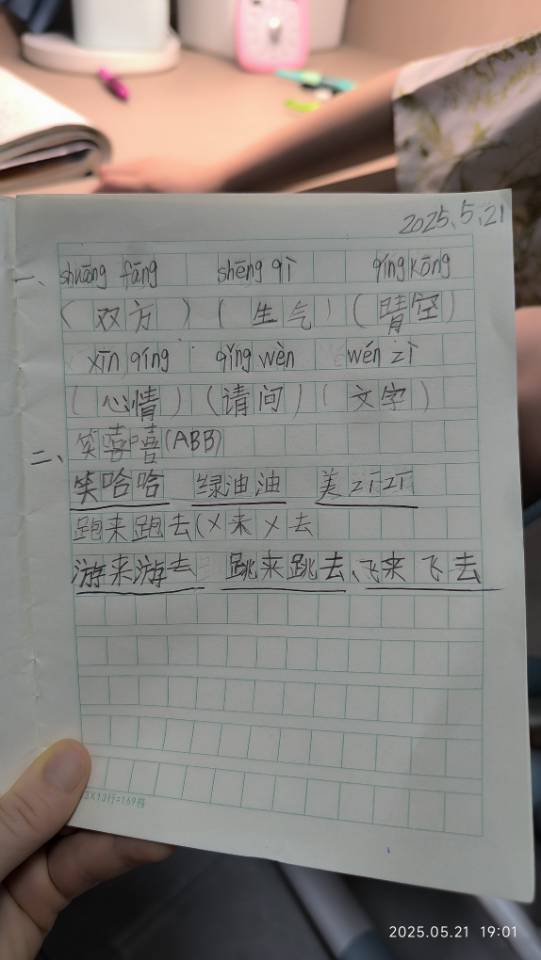 2025.5.21
一、shuāng fāng shēng qì qíng kōng
(双方) (生气) (晴空)
xīn qíng qǐng wèn wén zì
(心情) (请问) (文字)
二、笑嘻嘻(ABB)
笑哈哈 绿油油 美zīzī
跑来跑去(X来X去
游来游去 跳来跳去、飞来飞去
2025.05.21 19:01